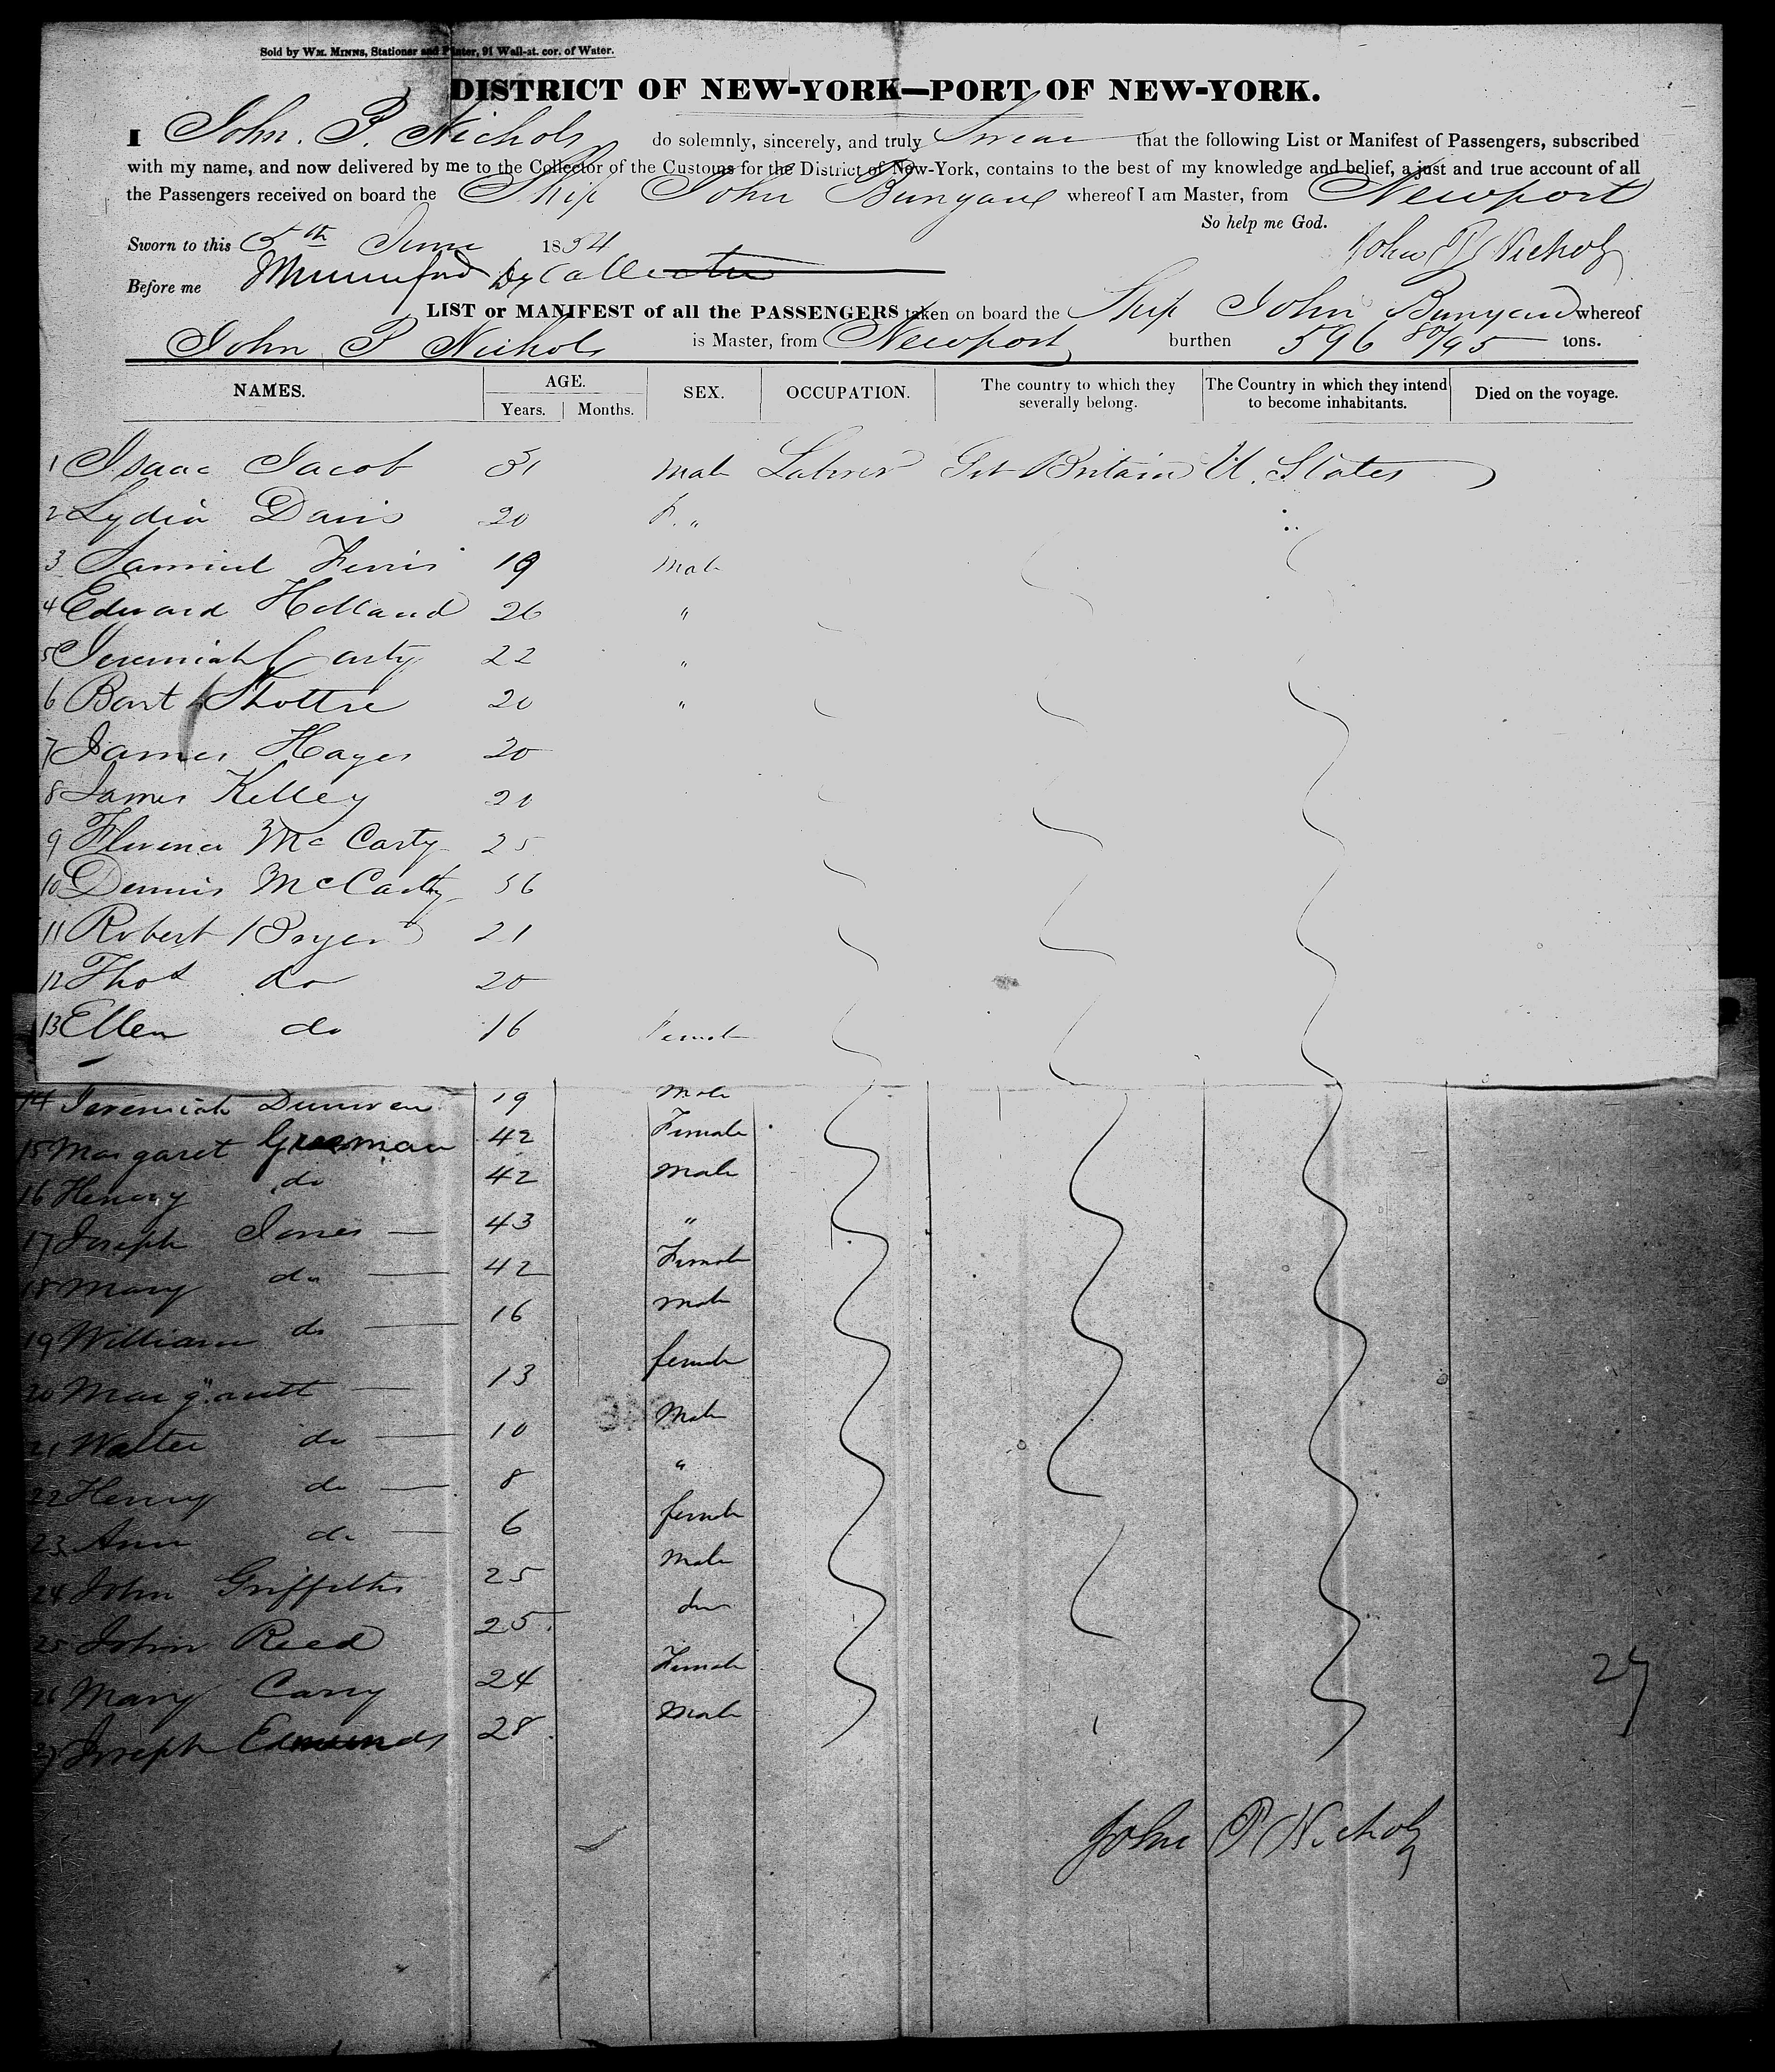 Sold by WM. MINNS, Stationer and Printer, 91 Wall-st. cor. of Water.
DISTRICT OF NEW-YORK—PORT OF NEW-YORK.
I John. P. Nichols do solemnly, sincerely, and truly Swear that the following List or Manifest of Passengers, subscribed
with my name, and now delivered by me to the Collector of the Customs for the District of New-York, contains to the best of my knowledge and belief, a just and true account of all
the Passengers received on board the Ship John Bunyan whereof I am Master, from Newport
So help me God.
Sworn to this 5th June 1854 John P Nichols
Before me Mumford Dy Collector
LIST or MANIFEST of all the PASSENGERS taken on board the Ship John Bunyan whereof
John P Nichols is Master, from Newport burthen 596 80/95 tons.
NAMES. AGE. SEX. OCCUPATION. The country to which they severally belong. The Country in which they intend to become inhabitants. Died on the voyage.
Years. Months.
1 Isaac Jacob 31 Male Labrer Gt Britain U. States
2 Lydia Davis 20 F. "
3 Samuel 19 Male
4 Edward Holland 26 "
5 Jeremiah Carty 22 "
6 Bart 20 "
7 James Hayes 20
8 James Kelley 20
9 Florence Mc Carty 25
10 Dennis McCarty 36
11 Robert Bryen 21
12 Thos do 20
13 Ellen do 16 Female
14 Jeremiah 19 Male
15 Margaret 42 Female
16 Henery do 42 Male
17 Joseph Jones 43 "
18 Mary do 42 Female
19 William do 16 Male
20 Margarett 13 female
21 Walter do 10 Male
22 Henry do 8 "
23 Ann do 6 female
24 John Griffiths 25 Male
25 John Reed 25. do
26 Mary Carry 24 Female
27 Joseph Edmunds 28 Male
27
John P Nichols